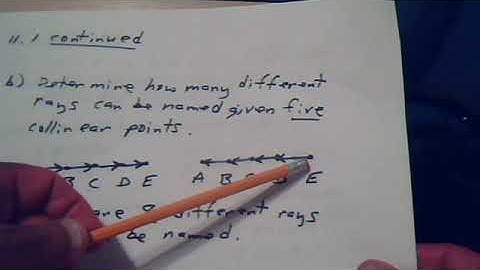 11.1 continued
b) Determine how many different
rays can be named given five
collinear points.
B C D E A B C D E
are 8 different rays
be named.